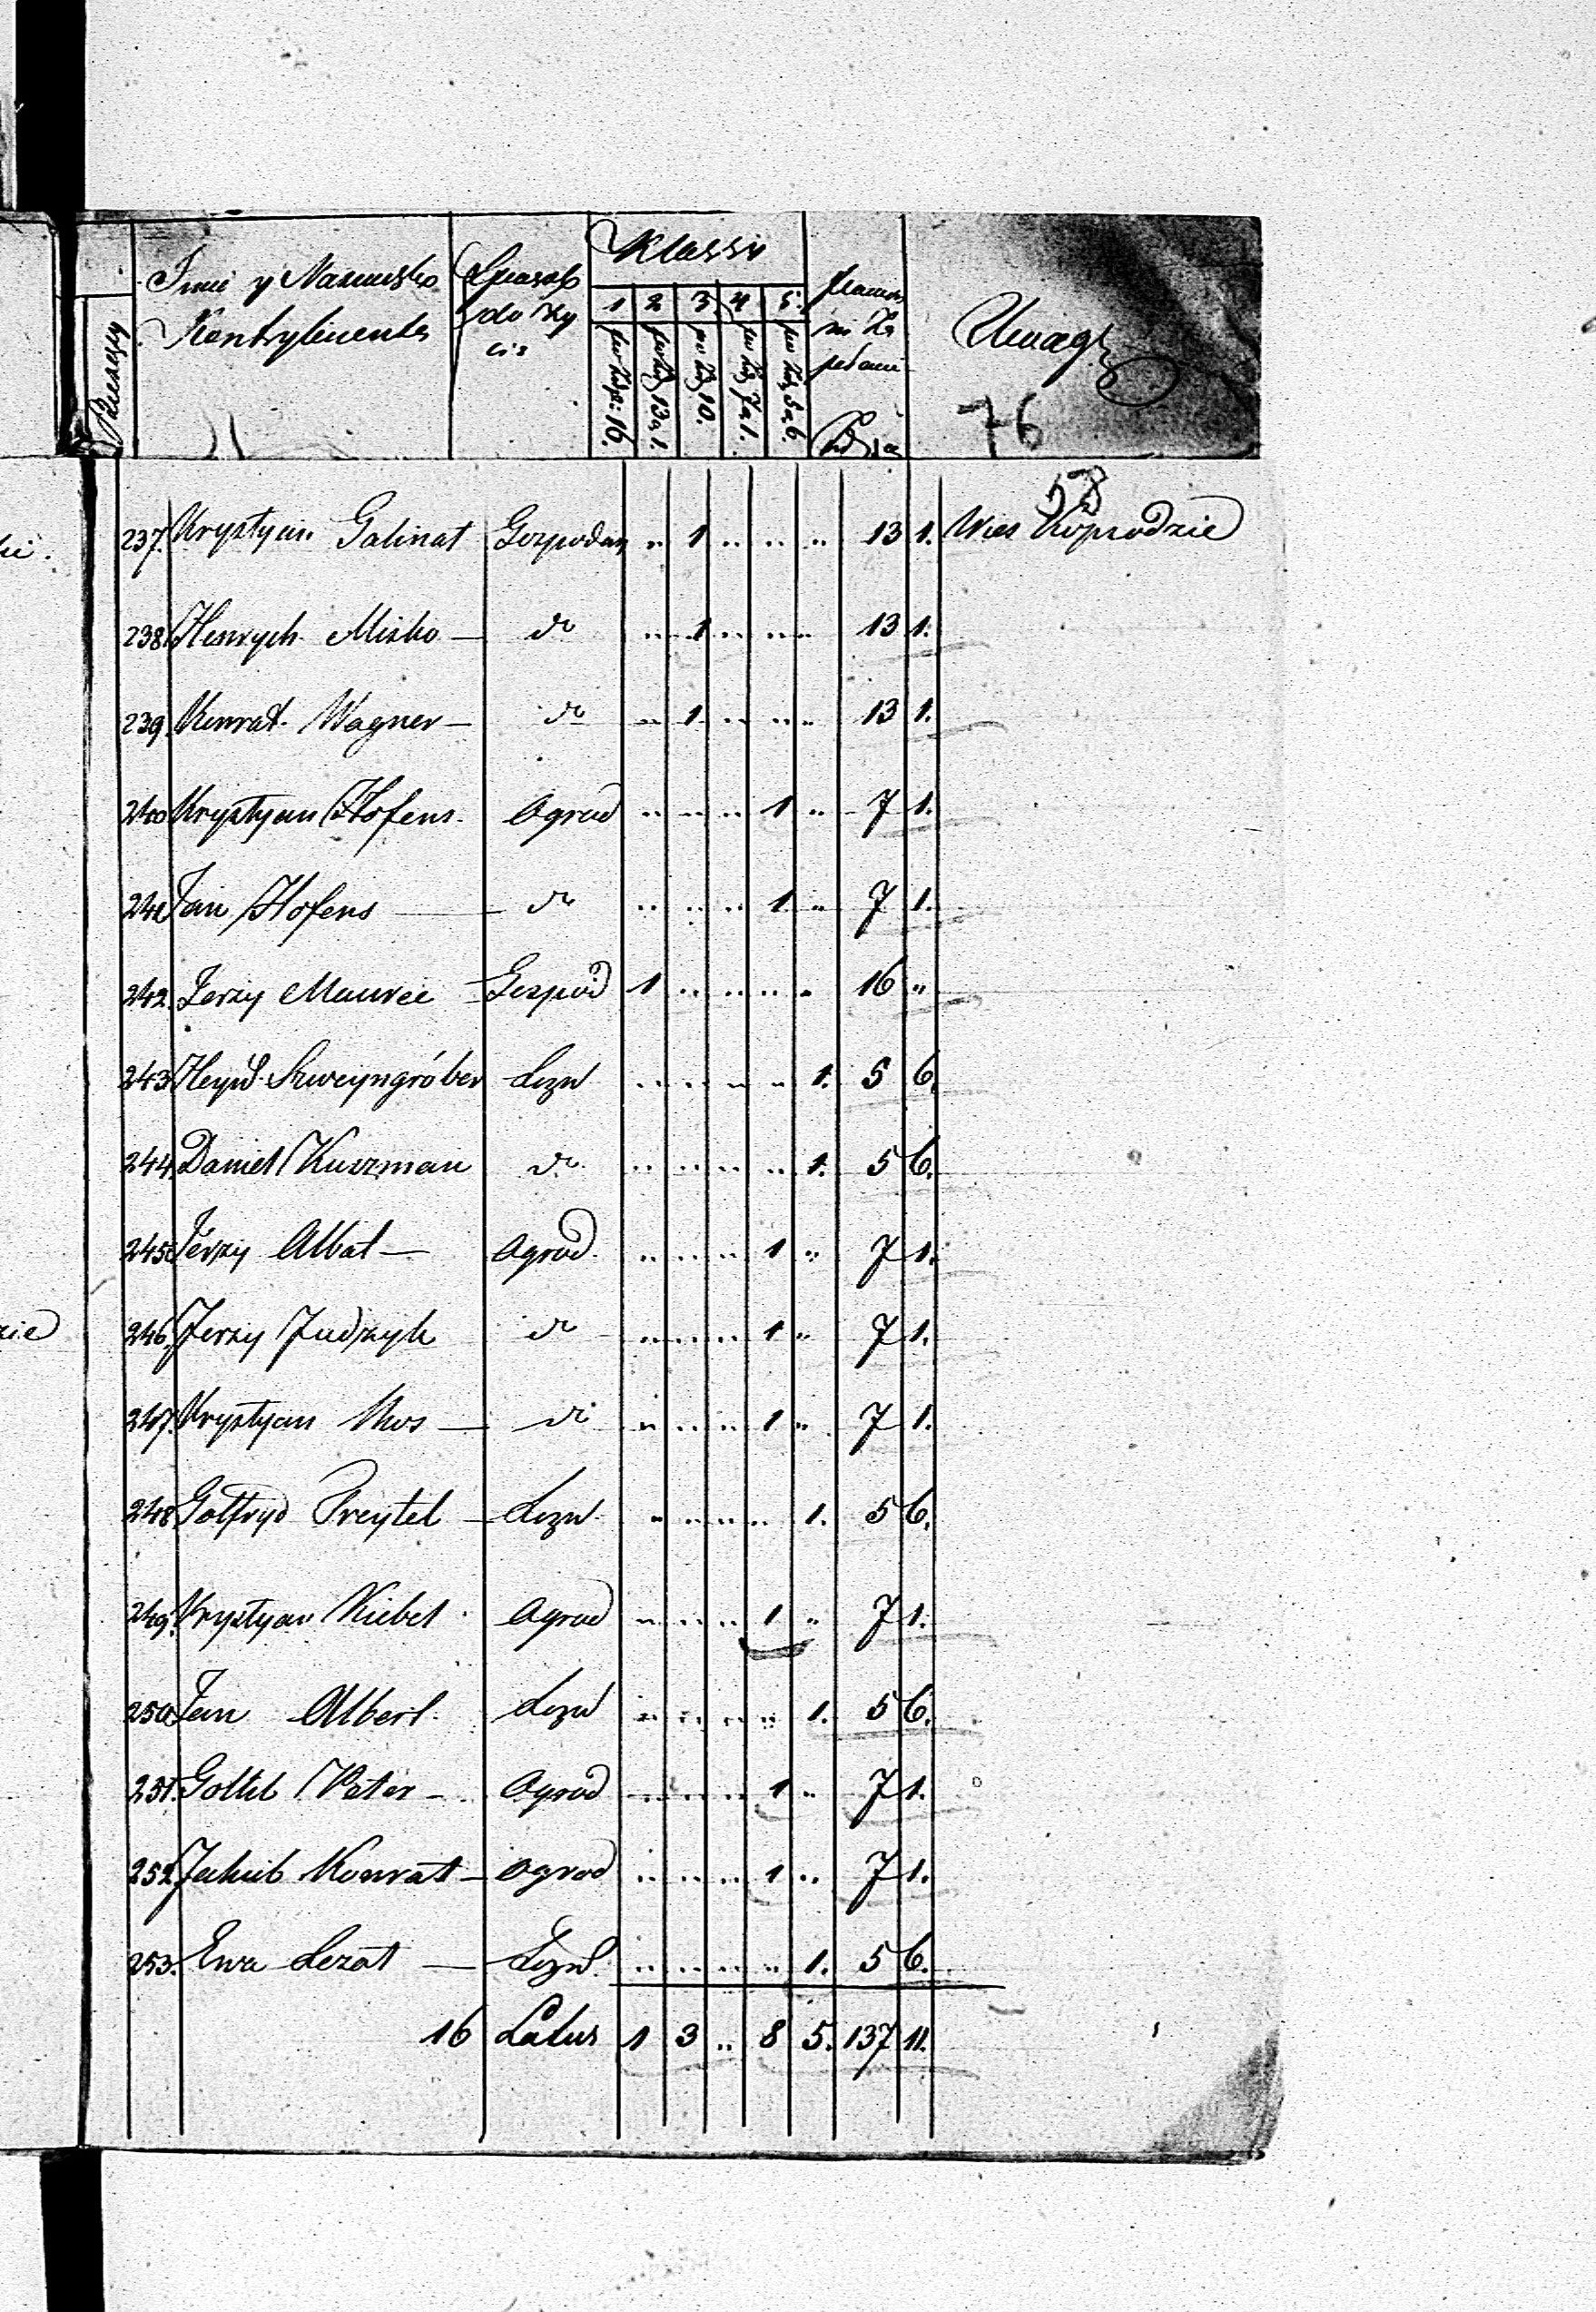 Imie y Nazwisko
Kontrybuenta
Sposob
do Zy
cia
Klassy
1 2 3 4 5.
po Złp: 16.
po Zł 13 g 1.
po Zł 10.
po Zł 7 g 1.
po Zł 5 g 6.
Uwagi
76
58
237. Krystyan Galinat Gospodarz .. 1 .. .. .. 13 1. Wies
238. Henrych Misko — do .. 1 .. .. .. 13 1.
239. Konrat Wagner — do .. 1 .. .. .. 13 1.
240 Krystyan Hofens Ogrod .. .. .. 1 .. 7 1.
241 Jan Hofens — do .. .. .. 1. .. 7 1.
242. Jerzy Maurer Gospod 1 .. .. .. .. 16 "
243. Heynd. Szweyngróber Lozn .. .. .. .. 1. 5 6.
244. Daniel Kurzman do .. .. .. .. 1. 5 6.
245. Jerzy Albat — Ogrod. .. .. .. 1 .. 7 1.
246. Jerzy Judzyk do .. .. .. 1 .. 7 1.
247. Krystyan Kus — do .. .. .. 1 .. 7 1.
248 Gotfryd Preytel — Lozn .. .. .. .. 1. 5 6.
249. Krystyan Kiebel Ogrod .. .. .. 1 .. 7 1.
250. Jan Albert. Lozn .. .. .. .. 1. 5 6.
251. Gottlib Peter — Ogrod .. .. .. 1 .. 7 1.
252. Jakub Konrat — Ogrod .. .. .. 1 .. 7 1.
253. Ewa Lezat — Lozn. .. .. .. .. 1. 5 6.
16 Latus 1 3 .. 8 5. 137 11.